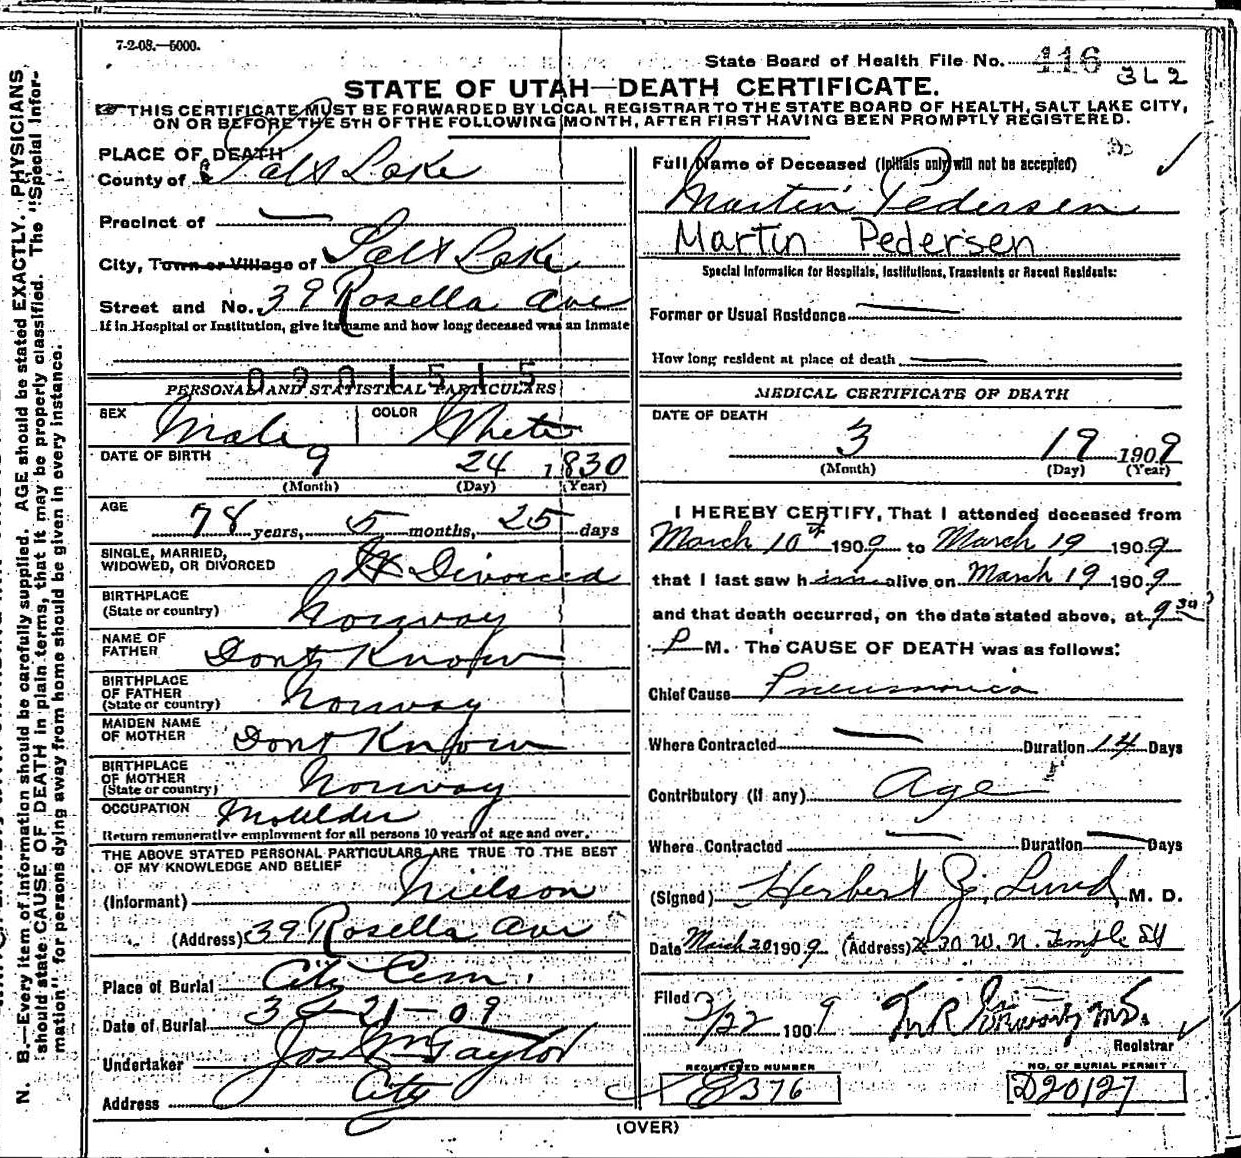 7-2-08.—5000.
State Board of Health File No. 416
3L2
STATE OF UTAH—DEATH CERTIFICATE.
THIS CERTIFICATE MUST BE FORWARDED BY LOCAL REGISTRAR TO THE STATE BOARD OF HEALTH, SALT LAKE CITY,
ON OR BEFORE THE 5TH OF THE FOLLOWING MONTH, AFTER FIRST HAVING BEEN PROMPTLY REGISTERED.
PLACE OF DEATH
County of Salt Lake
Precinct of —
City, Town or Village of Salt Lake
Street and No. 39 Rosella Ave
If in Hospital or Institution, give its name and how long deceased was an inmate
0901515
PERSONAL AND STATISTICAL PARTICULARS
SEX Male COLOR White
DATE OF BIRTH 9 24 1830
(Month) (Day) (Year)
AGE
78 years, 5 months, 25 days
SINGLE, MARRIED,
WIDOWED, OR DIVORCED Divorced
BIRTHPLACE
(State or country) Norway
NAME OF
FATHER Dont Know
BIRTHPLACE
OF FATHER
(State or country) Norway
MAIDEN NAME
OF MOTHER Dont Know
BIRTHPLACE
OF MOTHER
(State or country) Norway
OCCUPATION Moulder
Return remunerative employment for all persons 10 years of age and over.
THE ABOVE STATED PERSONAL PARTICULARS ARE TRUE TO THE BEST
OF MY KNOWLEDGE AND BELIEF
(Informant) Nielson
(Address) 39 Rosella Ave
Place of Burial City Cem.
Date of Burial 3-21-09
Undertaker Jos Wm Taylor
Address City
Full Name of Deceased (Initials only will not be accepted)
Martin Pedersen
Martin Pedersen
Special Information for Hospitals, Institutions, Transients or Recent Residents:
Former or Usual Residence —
How long resident at place of death —
MEDICAL CERTIFICATE OF DEATH
DATE OF DEATH
3 19 1909
(Month) (Day) (Year)
I HEREBY CERTIFY, That I attended deceased from
March 10th 1909 to March 19 1909
that I last saw him alive on March 19 1909
and that death occurred, on the date stated above, at 9 30
P M. The CAUSE OF DEATH was as follows:
Chief Cause Pneumonia
Where Contracted — Duration 14 Days
Contributory (if any) Age
Where Contracted — Duration — Days
(Signed) Herbert Z. Lund, M. D.
Date March 20 1909 (Address) 30 W. N. Temple St
Filed 3/22 1909
Registrar
REGISTERED NUMBER
E376
NO. OF BURIAL PERMIT
D20127
(OVER)
N. B.—Every item of information should be carefully supplied. AGE should be stated EXACTLY. PHYSICIANS
should state CAUSE OF DEATH in plain terms, that it may be properly classified. The "Special Infor-
mation" for persons dying away from home should be given in every instance.